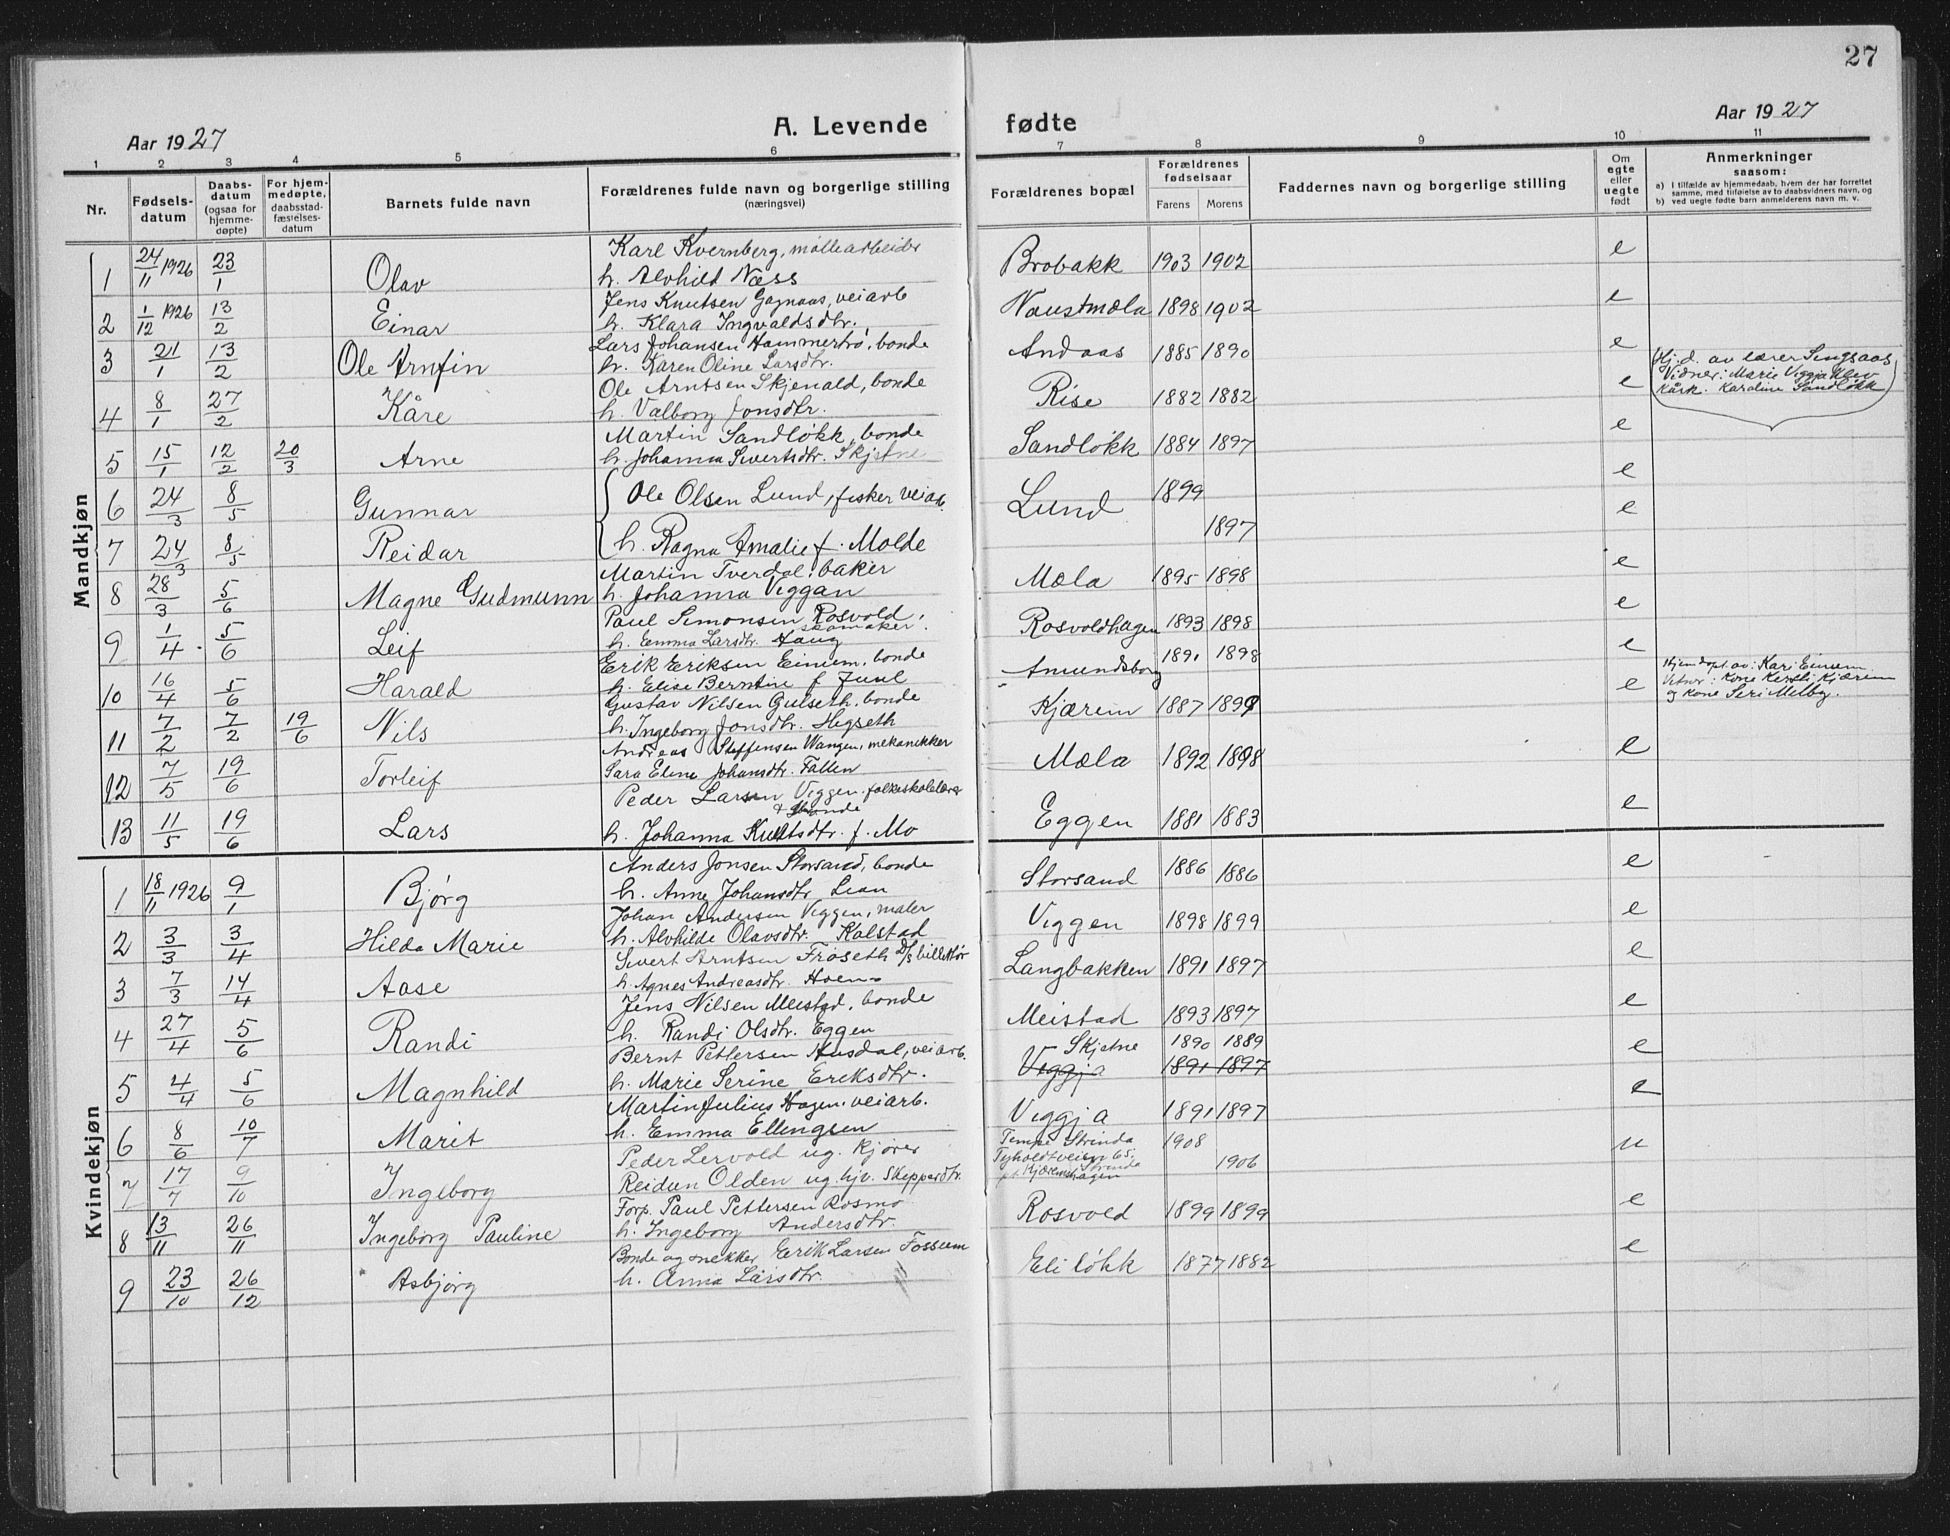 27
Aar 1927 A. Levende fødte Aar 1927
1 2 3 4 5 6 7 8 9 10 11
Nr. Fødsels-datum Daabs-datum (ogsaa for hjemme-døpte) For hjem-medøpte, daabsstad-fæstelses-datum Barnets fulde navn Forældrenes fulde navn og borgerlige stilling (næringsvei) Forældrenes bopæl Forældrenes fødselsaar Farens Morens Faddernes navn og borgerlige stilling Om egte eller uegte født Anmerkninger saasom:
a) I tilfælde av hjemmedaab, hvem der har forrettet samme, med tilføielse av to daabsvidners navn, og
b) ved uegte fødte barn anmelderens navn m. v.
Mandkjøn
1 24/11 1926 23/1 Olav Karl Kvernberg, møllearbeider
h. Alvhild Næss Brobakk 1903 1902 e
2 1/12 1926 13/2 Einar Jens Knutsen Gagnaas, veiarb
h. Klara Ingvaldsdtr. Naustmæla 1898 1902 e
3 21/1 13/2 Ole Arnfin Lars Johansen Hammertrø, bonde
h. Karen Oline Larsdtr. Andaas 1885 1890 e
4 8/1 27/2 Kåre Ole Arntsen Skjenald, bonde
h. Valborg Jonsdtr. Rise 1882 1882 e
Hj.d. av lærer Singsaas
Vidner: Marie Viggja Klev
kårk. Karoline Sandløkk
5 15/1 12/2 20/3 Arne Martin Sandløkk, bonde
h. Johanna Sivertsdtr. Skjetne Sandløkk 1884 1897 e
6 24/3 8/5 Gunnar Ole Olsen Lund, fisker veiarb. Lund 1899 e
7 24/3 8/5 Reidar h. Ragna Amalie f. Molde 1897 e
8 28/3 5/6 Magne Gudmunn Martin Tverdal, baker
h. Johanna Viggan Mæla 1895 1898 e
9 1/4 5/6 Leif Paul Simonsen Rosvold, skomaker.
h. Emma Larsdtr. Haug Rosvoldhagen 1893 1898 e
10 16/4 5/6 Harald Erik Eriksen Einum, bonde
h. Elise Berntine f Juul Amundsborg 1891 1898 e
11 7/2 7/2 19/6 Nils Gustav Nilsen Gulseth, bonde
h. Ingeborg Jonsdtr. Hegseth Kjærem 1887 1899 e
Hjemdøpt av: Kari Einum
Vitner: Kone Kersti Kjærem
og kone Seri Melby.
12 7/5 19/6 Torleif Andreas Steffensen Wangen, mekanikker
Sara Eline Johansdtr. Fallen Mæla 1892 1898 e
13 11/5 19/6 Lars Peder Larsen Viggen. folkeskolelærer & bonde
h. Johanna Knutsdtr. f. Mo Eggen 1881 1883 e
Kvindekjøn
1 18/11 1926 9/1 Bjørg Anders Jonsen Storsand, bonde
h. Anne Johansdtr Lian Storsand 1886 1886 e
2 3/3 3/4 Hilda Marie Johan Andersen Viggen, maler
h. Alvhilde Olavsdtr. Kalstad Viggen 1898 1899 e
3 7/3 14/4 Aase Sivert Arntsen Frøseth D/S billettør
h. Agnes Andreasdtr. Hoen Langbakken 1891 1897 e
4 27/4 5/6 Randi Jens Nilsen Meistad, bonde
h. Randi Olsdtr. Eggen Meistad 1893 1897 e
5 4/4 5/6 Magnhild Bernt Pettersen Husdal, veiarb.
h. Marie Serine Eriksdtr. Skjetne 1890 1889 e
Viggja 1891 1897
6 8/6 10/7 Marit Martin Julius Hagen, veiarb.
h. Emma Ellingsen Viggja 1891 1897 e
7 17/7 9/10 Ingeborg Peder Lervold ug. kjører
Reidun Olden ug. hjv. Skipperdtr. Tempe Strinda 1908
Tyholdtveien 65, Strinda
pt Kjæremshagen 1906 u
8 13/11 26/11 Ingeborg Pauline Forp. Paul Pettersen Rosmo
h. Ingeborg Andersdtr. Rosvold 1899 1899 e
9 23/10 26/12 Asbjørg Bonde og snekker Erik Larsen Fossum
h. Anna Larsdtr. Eliløkk 1877 1882 e